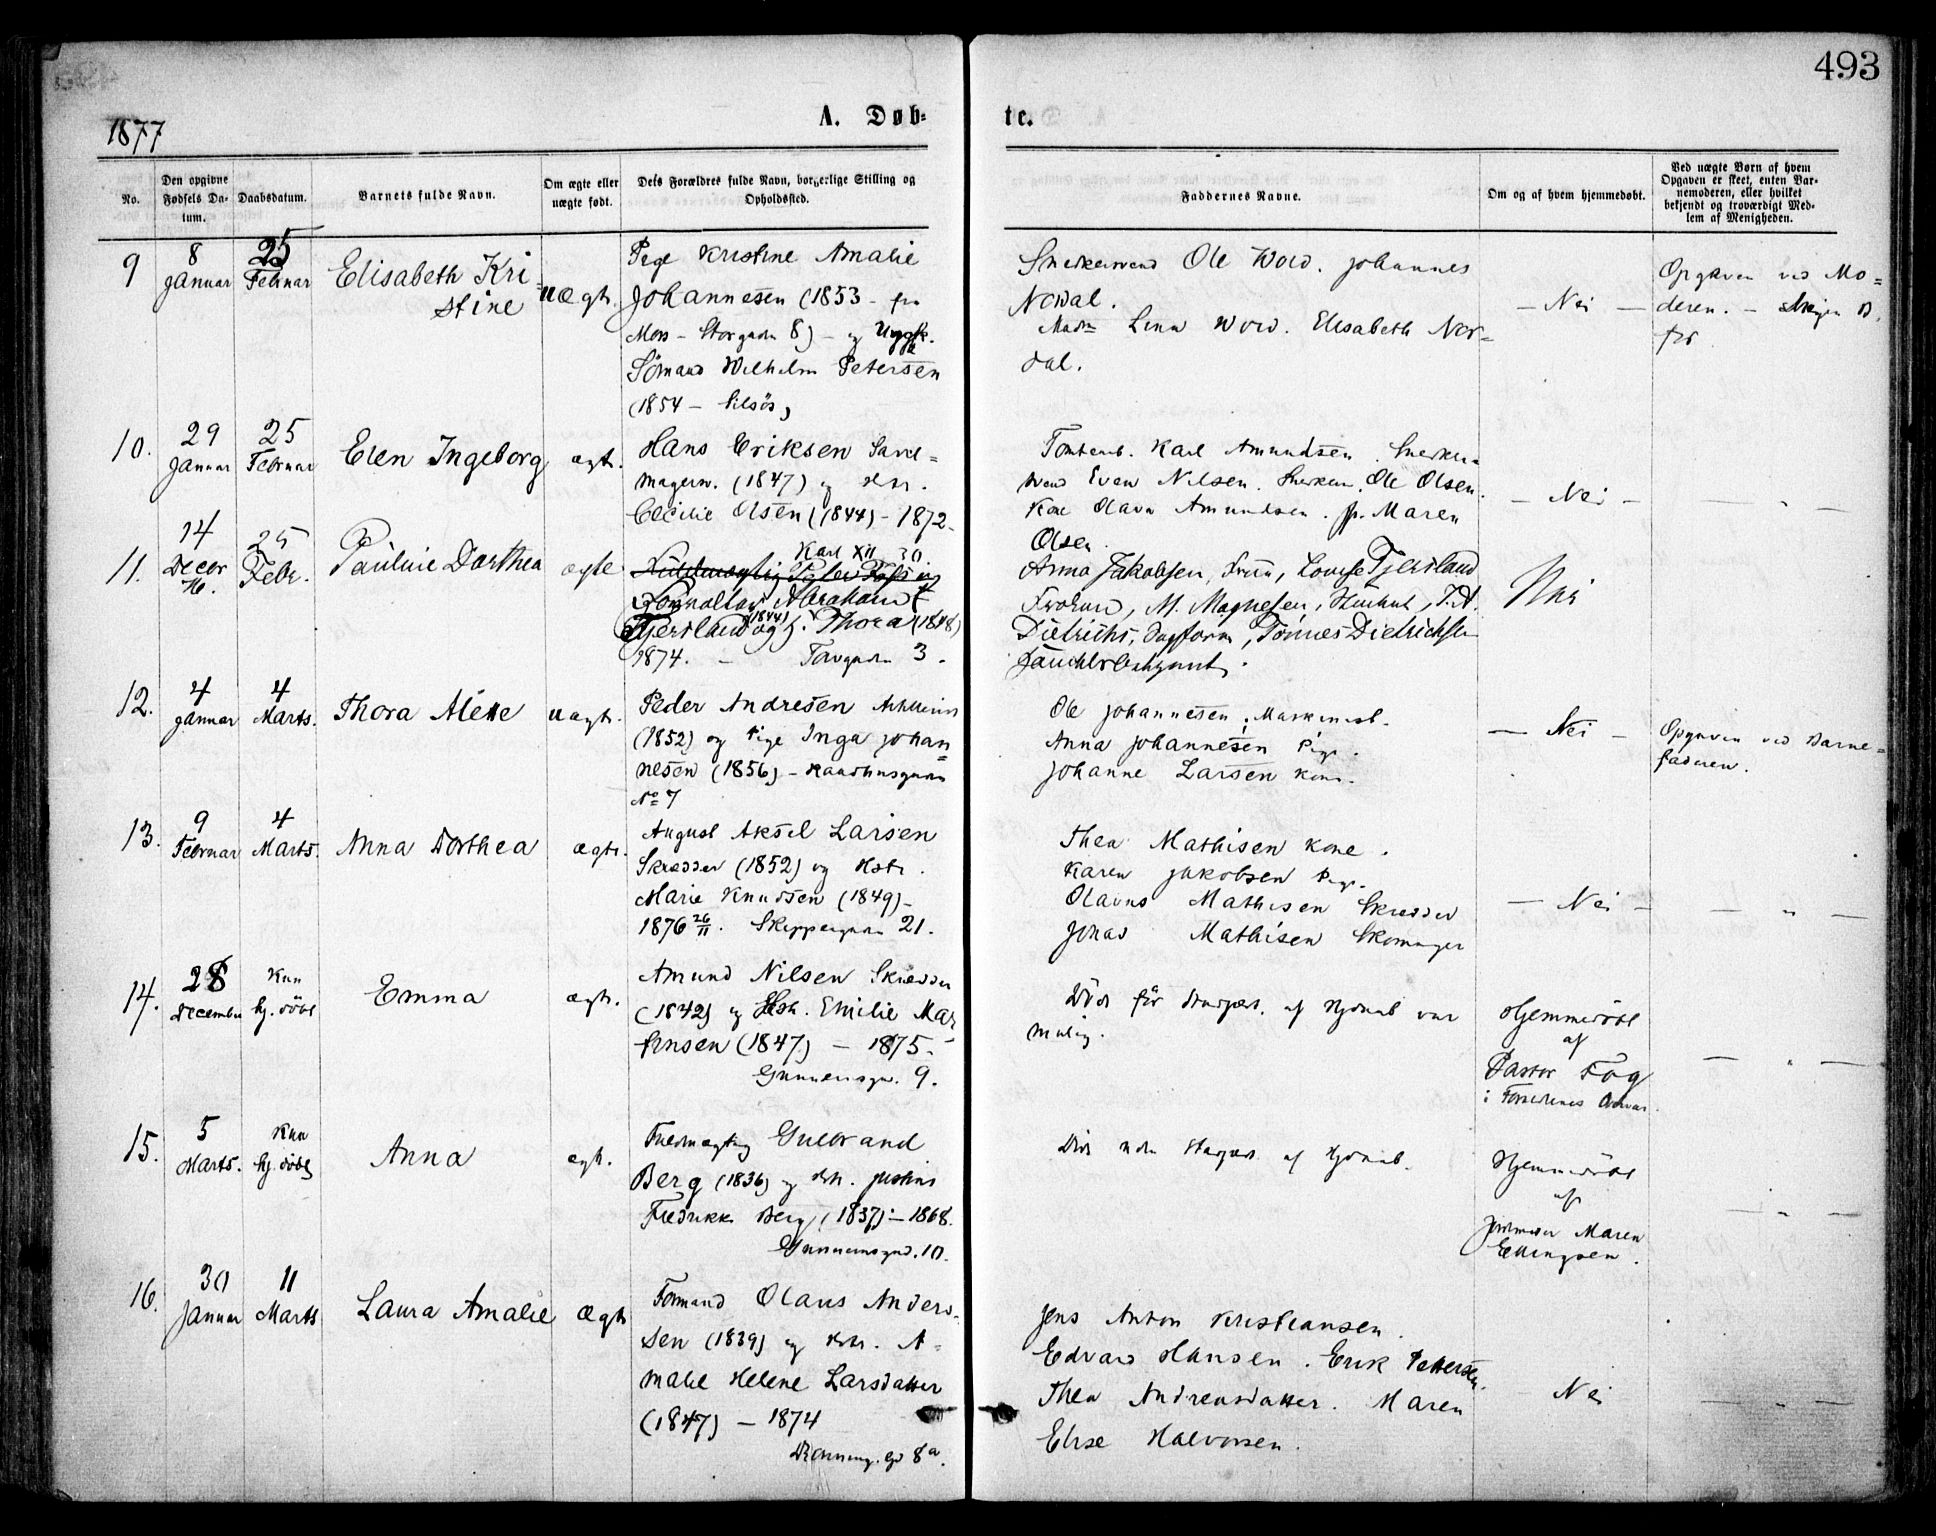 493
1877
A. Døb-
te.
No.
Den opgivne Fødsels Datum.
Daabsdatum.
Barnets fulde Navn.
Om ægte eller uægte født.
Dets Forældres fulde Navn, borgerlige Stilling og Opholdssted.
Faddernes Navne.
Om og af hvem hjemmedøbt.
Ved uægte Børn af hvem Opgaven er skeet, enten Barnemoderen, eller hvilket bekjendt og troværdigt Medlem af Menigheden.
9
8 Januar
25 Februar
Elisabeth Kri-
stine
uægt.
Pige Kristine Amalie
Johannesen (1853 - fra
Moss - Storgaden 8) - og Ungk.
Sømand Wilhelm Petersen
(1854 -
Ole Wold. Johannes
Nordal.
Lina Wold. Elisabeth Nor-
dal.
- Nei -
Opgaven ved Mo-
deren.
10.
29 Januar
25 Februar
Elen Ingeborg
ægte.
Hans Eriksen
(1847) og Hstr.
Cecilie Olsen (1844) - 1872.
Karl Amundsen. Snedker-
svend Even Nilsen. Ole Olsen.
Kone Olava Amundsen. Maren
Olsen.
- Nei -
11.
14 Decbr 76.
25 Febr.
Pauline Dorthea
ægte
Karl XII 30
Abraham
Tjersland (1844) og H. Thora (1848)
1874. - 3.
Anna Jakobsen, Louise Tjersland
Frøken, M. Magnesen, T. A.
Dietrichs, Tønnes Dietrichsen
Nei
12.
4 Januar
4 Marts.
Thora Alette
uægt.
Peder Andresen
(1852) og Pige Inga Johan-
nesen (1856) -
No 7
Ole Johannesen, Maskinist.
Anna Johannesen Pige.
Johanne Larsen Kone.
- Nei -
Opgaven ved Barne-
faderen.
13.
9 Februar
4 Marts.
Anna Dorthea
ægte.
August Aksel Larsen
Skrædder (1852) og Hstr.
Marie Knudsen (1849) -
1876 26/11. Skippergaden 21.
Thea Mathisen Kone.
Karen Jakobsen Pige.
Olavus Mathisen Skrædder
Jonas Mathisen Skomager
- Nei -
14.
28 December
Kun hj. döbt
Emma
ægte.
Amund Nilsen Skrædder
(1842) og Hstr. Emilie Mar-
tinsen (1847) - 1875.
9.
Död för af Hjdaab var
mulig.
Hjemmedöbt
af
Pastor Fog
i
15.
5 Marts.
Kun hj. döbt
Anna
ægt.
Fuldmægtig Gulbrand
Berg (1836) og Hstr. Justine
Fredrikke Berg (1837) - 1868.
10.
af Hjdaab.
Hjemmedöbt
af
Jordmoder Maren
Ellingsen.
16.
30 Januar
11 Marts
Laura Amalie
ægte
Formand Olaus Anders-
sen (1839) og Hstr. A-
malie Helene Larsdatter
(1847) - 1874
8a.
Jens Anton Kristiansen.
Edvard Hansen. Erik Pettersen.
Thea Andreasdatter. Maren
Elise Halvorsen.
Nei